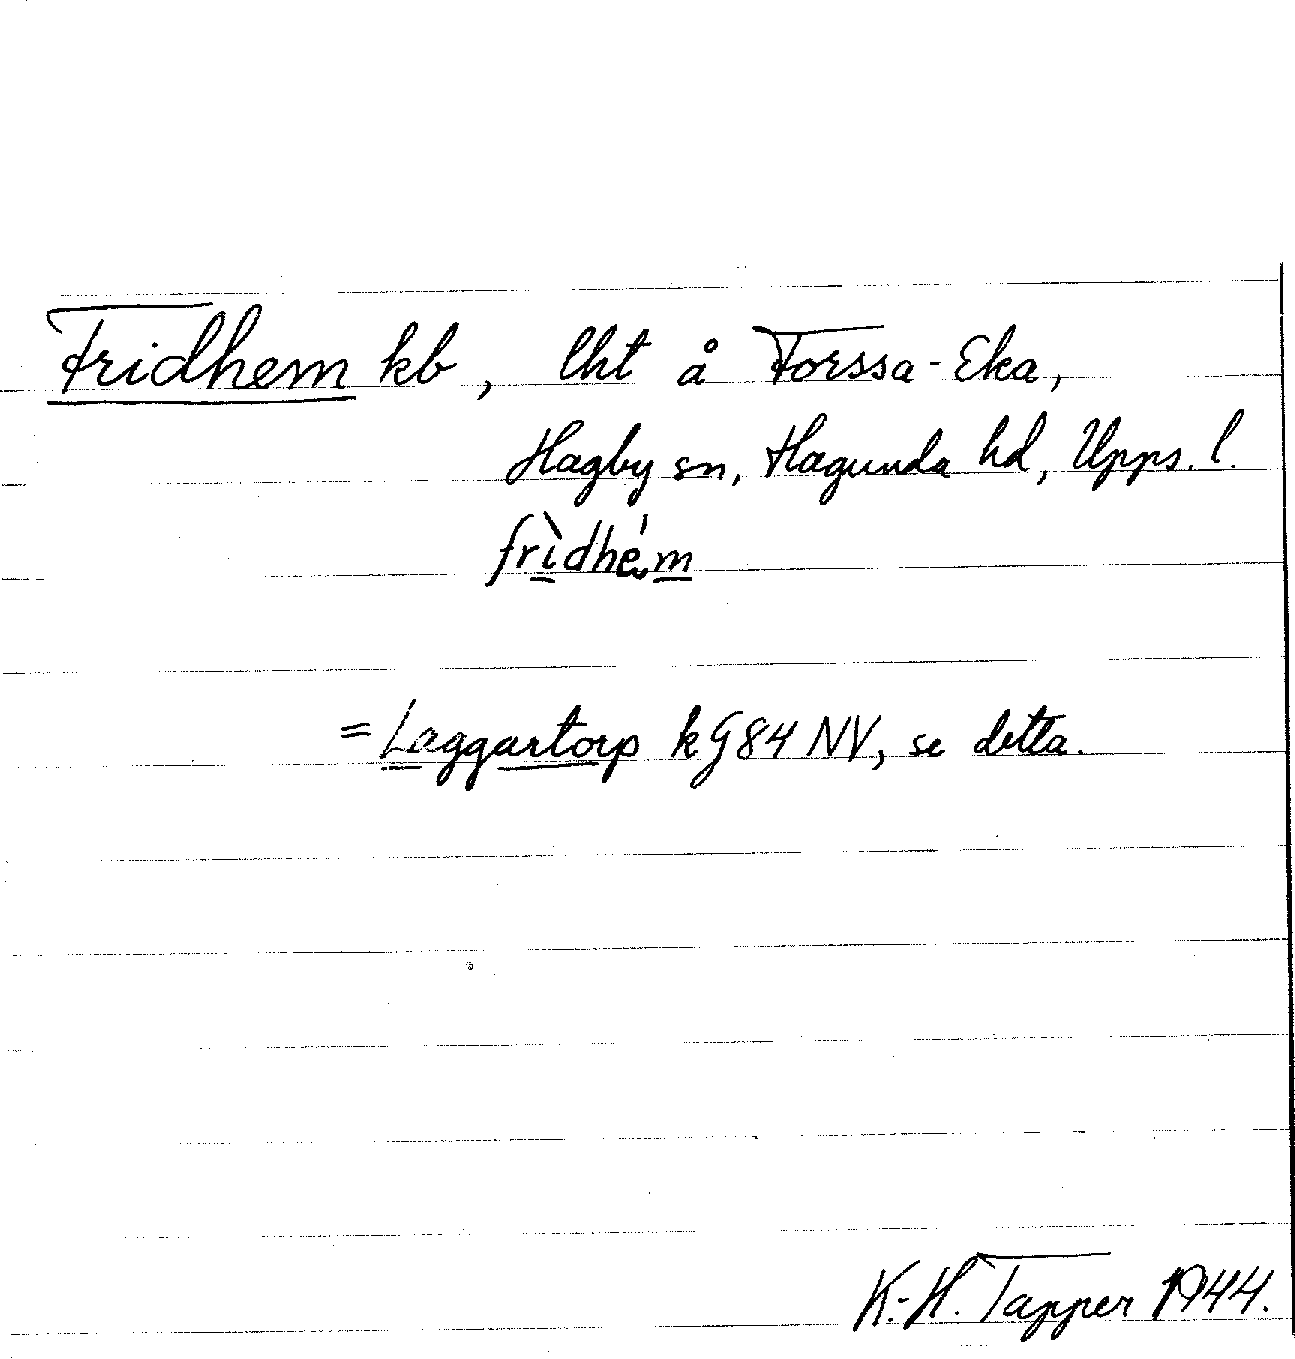 Fridhem kb, lht å Forssa-Eka,
Hagby sn, Hagunda hd, Upps. l.
frìdhém
= Laggartorp k G84 NV, se detta.
K.-H. Tapper 1944.